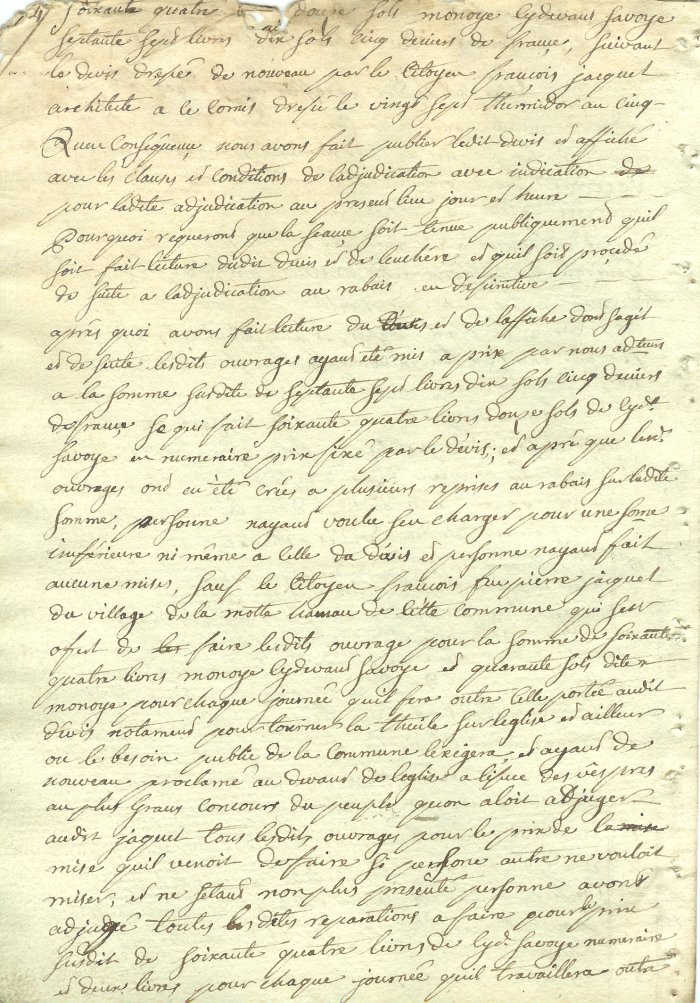 soixante quatre douze sols monoye cydevant savoye
septante sept livres dix sols cinq deniers de france, suivant
le devis dressé de nouveau par le Citoyen françois jacquet
architecte a ce comis dressé le vingt sept thermidor an cinq
Qu'en Conséquence nous avons fait publier ledit devis et affiché
avec les clauses et conditions de ladjudication avec indication
pour ladite adjudication au present lieu jour et heure
Pourquoi requerons que la seance soit tenue publiquement quil
soit fait lecture dudit devis et de lenchére et quil soit procédé
de suite a ladjudication au rabais en définitive
aprés quoi avons fait lecture du devis et de laffiche dont sagit
et de suite lesdits ouvrages ayant été mis a prix par nous
a la somme susdite de septante sept livres dix sols cinq deniers
de france se qui fait soixante quatre livres douze sols de cyd.t
savoye en numeraire prix fixé par le dévis; et apré que
ouvrages ont eu été criés a plusieurs reprises au rabais sur ladite
somme, personne nayant voulu sen charger pour une some
inférieure ni même a celle du dévis et personne nayant fait
aucune mises, sauf le Citoyen francois feu pierre jacquet
du village de la motte hamau de cette commune qui sest
ofert de faire lesdits ouvrage pour la somme de soixante
quatre livres monoye cydevant savoye et quarante sols dite
monoye pour chaque journée quil fera outre celle portée audit
dévis notament pour tourner la thuile sur leglise et ailleur
ou le besoin public de la commune lexigera, et ayant de
nouveau proclamé au devant de leglise a lissue des vêspres
au plus grans concours du peuple quon aloit adjuger
audit jaquet tous lesdits ouvrages pour le prix de la mise
mise quil venoit de faire si persone autre ne vouloit
miser, et ne sétant non plus présenté personne avons
adjugé toutes les dites reparations a faire pour le prix
susdit de soixante quatre livres de cyd.t savoye numeraire
et deux livres pour chaque journée quil travaillera outre